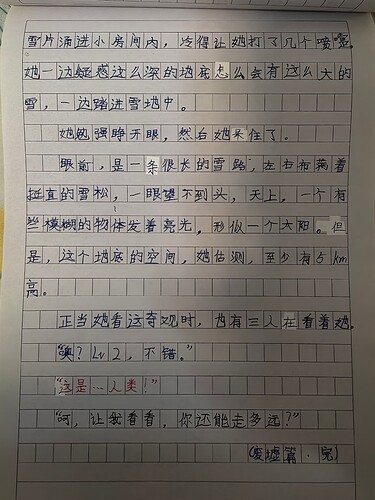 雪片涌进小房间内，冷得让她打了几个喷嚏。
她一边疑惑这么深的地底怎么会有这么大的
雪，一边踏进雪地中。
她勉强睁开眼，然后她呆住了。
眼前，是一条很长的雪路，左右布满着
挺直的雪松，一眼望不到头，天上，一个有
些模糊的物体发着亮光，形似一个太阳。但
是，这个地底的空间，她估测，至少有5km
高。
正当她看这奇观时，也有三人在看着她。
“噢？Lv2，不错。”
“这是…人类！”
“呵，让我看看，你还能走多远？”
（废墟篇·完）